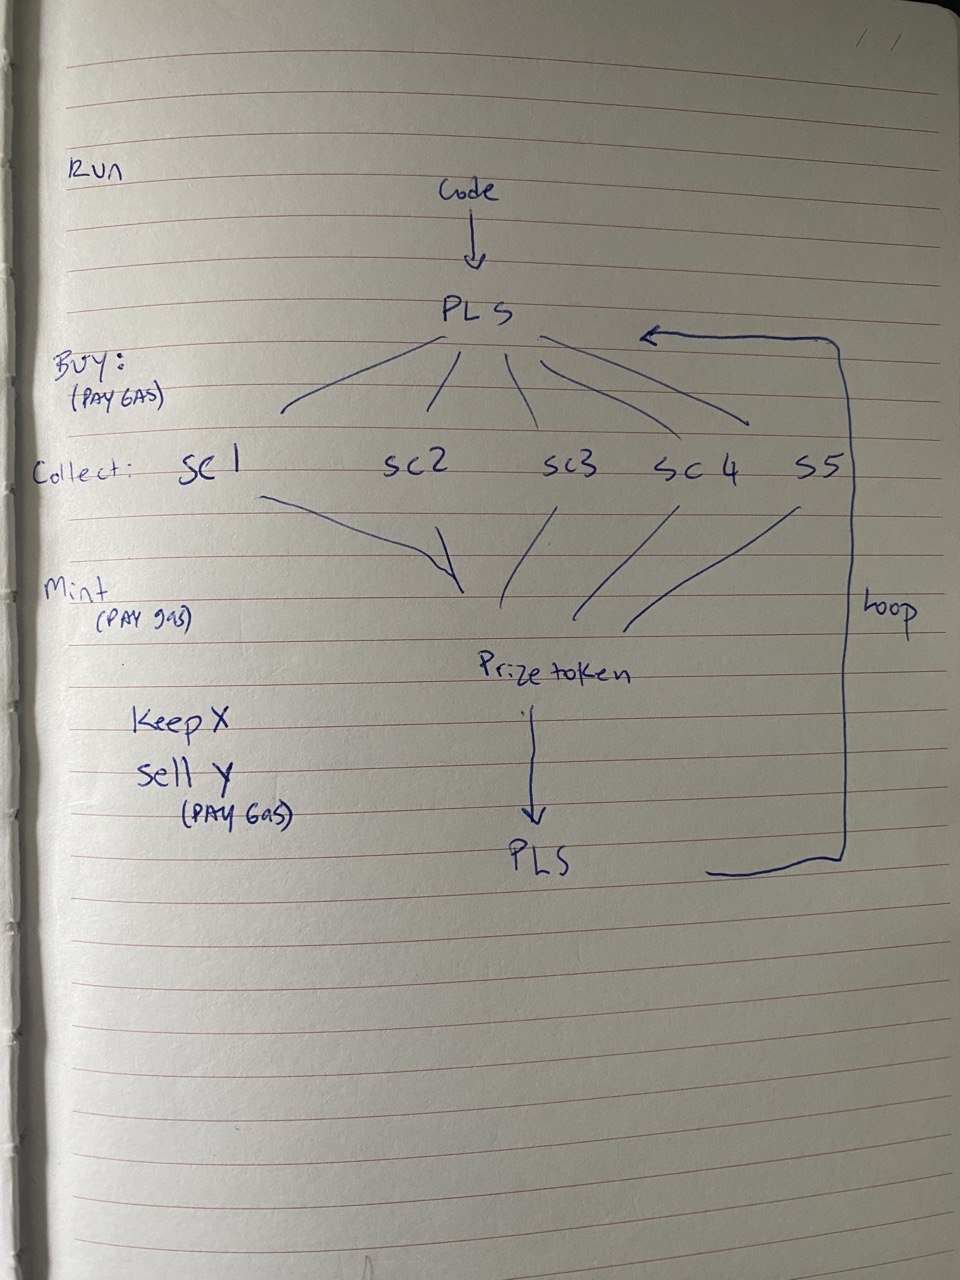 Run
Code
PLS
Buy:
(PAY GAS)
Collect: SC1 SC2 SC3 SC4 S5
Mint
(PAY gas)
Loop
Prize token
Keep X
Sell Y
(PAY Gas)
PLS